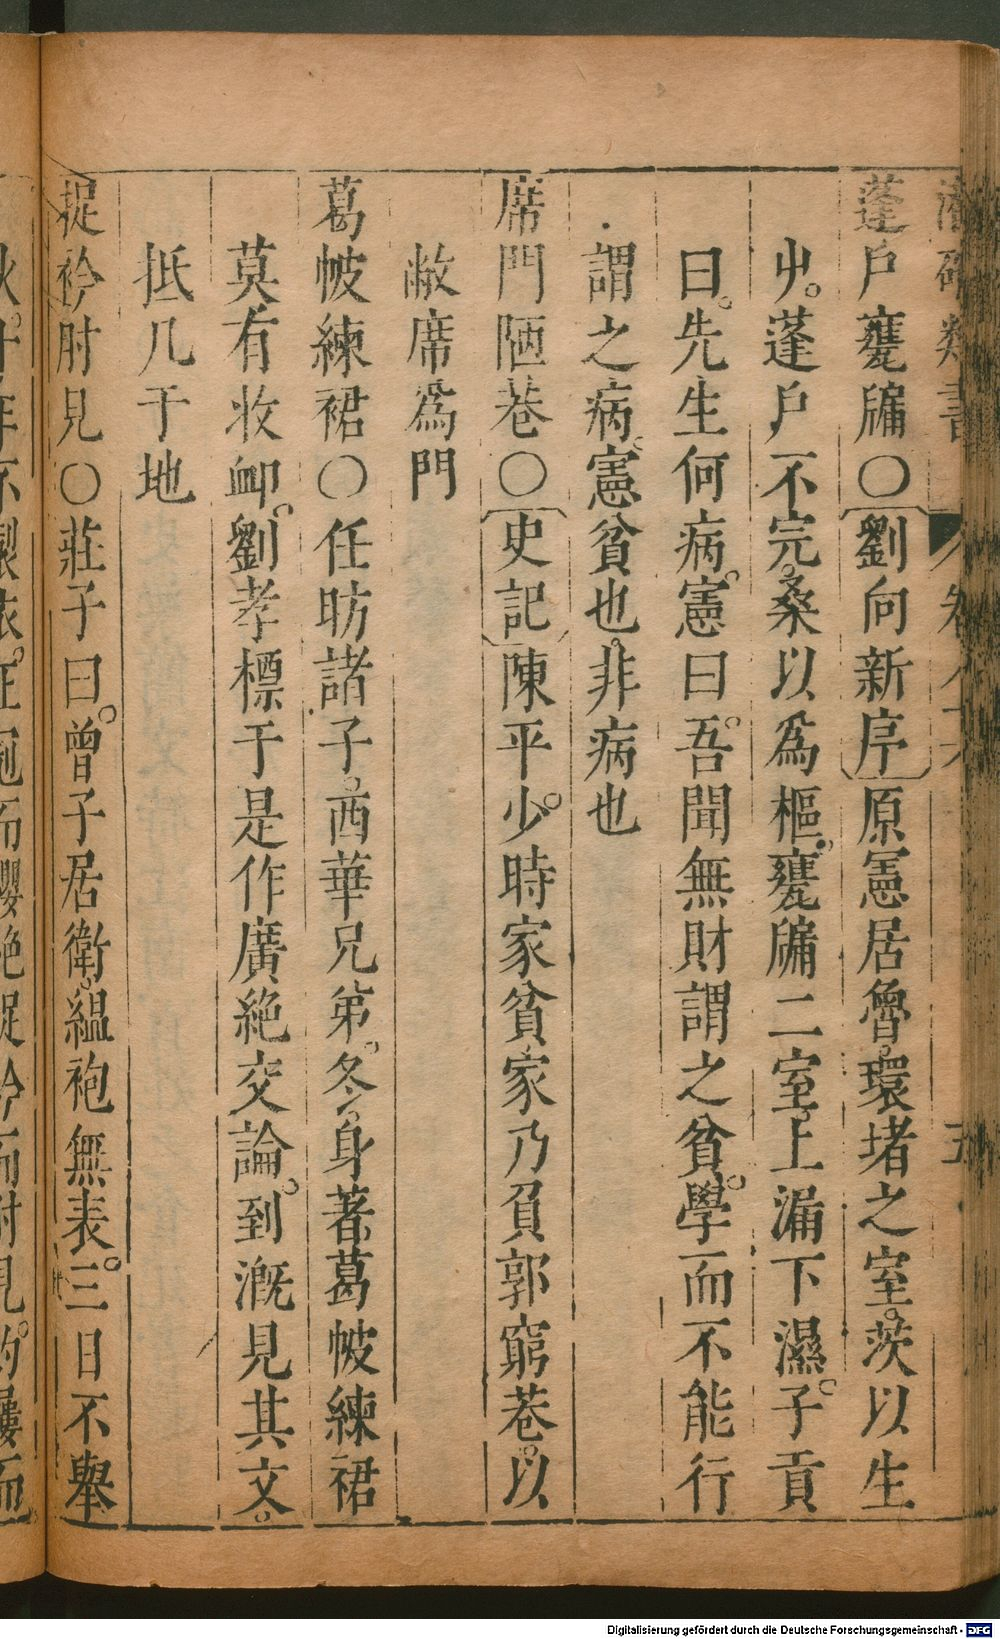 類書
卷
五
蓬戶甕牖○劉向新序原憲居魯環堵之室。茨以生
屮。蓬戶不完。桑以為樞。甕牖二室。上漏下濕。子貢
曰。先生何病。憲曰。吾聞無財謂之貧。學而不能行
謂之病。憲貧也。非病也
席門陋巷○史記陳平少。時家貧家乃負郭窮巷。以
敝席為門
葛帔練裙○任昉諸子。西華兄弟。冬。身著葛帔練裙
莫有收卹。劉孝標于是作廣絶交論。到溉見其文。
抵几于地
捉衿肘見○莊子曰。曾子居衛。縕袍無表。三日不舉
不製衣。正冠而纓絶捉衿而肘見。
Digitalisierung gefördert durch die Deutsche Forschungsgemeinschaft - DFG